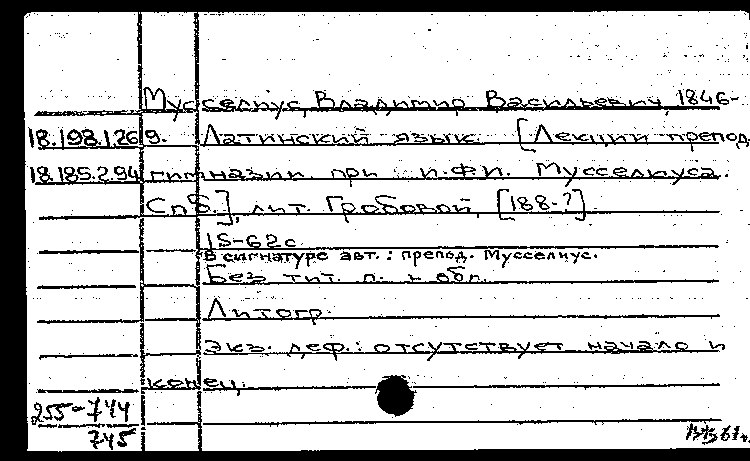 Мусселиус, Владимир Васильевич, 1846-
18.198.1.269. Латинский язык. [Лекции препод.
18.185.2.94 гимназии при и.ф.и. Мусселиуса.
Спб.], лит. Гробовой, [188-?].
15-62 с.
В сигнатуре авт.: препод. Мусселиус.
Без тит. л. и обл.
Литогр.
Экз. деф.: отсутствует начало и
конец.
255-744
745